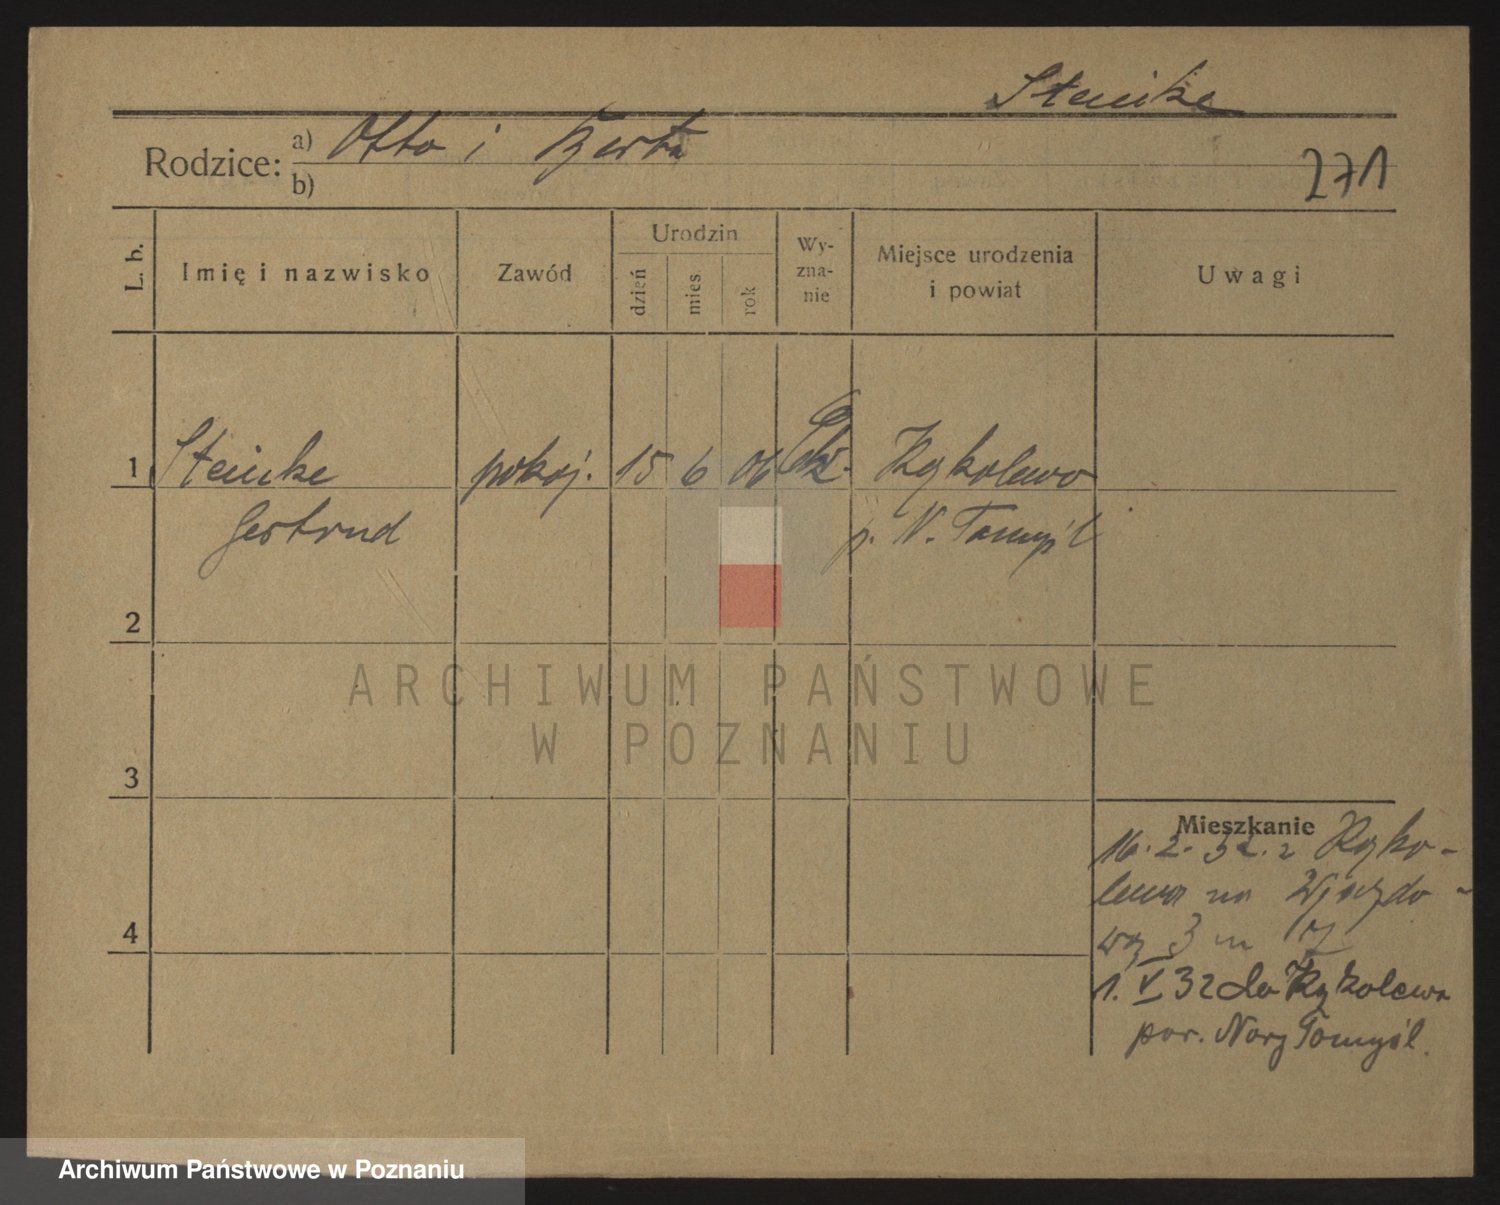 Steinke
Rodzice: a) Otto i Berta
b)
271
L. b.
Imię i nazwisko
Zawód
Urodzin
dzień
mies
rok
Wy-
zna-
nie
Miejsce urodzenia
i powiat
Uwagi
1 Steinke pokoj. 15 6 06 Ew. Kąkolewo
Gertrud p. N. Tomyśl
2
3
4
Mieszkanie
16. 2. 32. z Kąko-
lewa na Wjazdo-
wą 3 m
1. V 32 do Kąkolewa
pow. Nowy Tomyśl.
ARCHIWUM PAŃSTWOWE
W POZNANIU
Archiwum Państwowe w Poznaniu